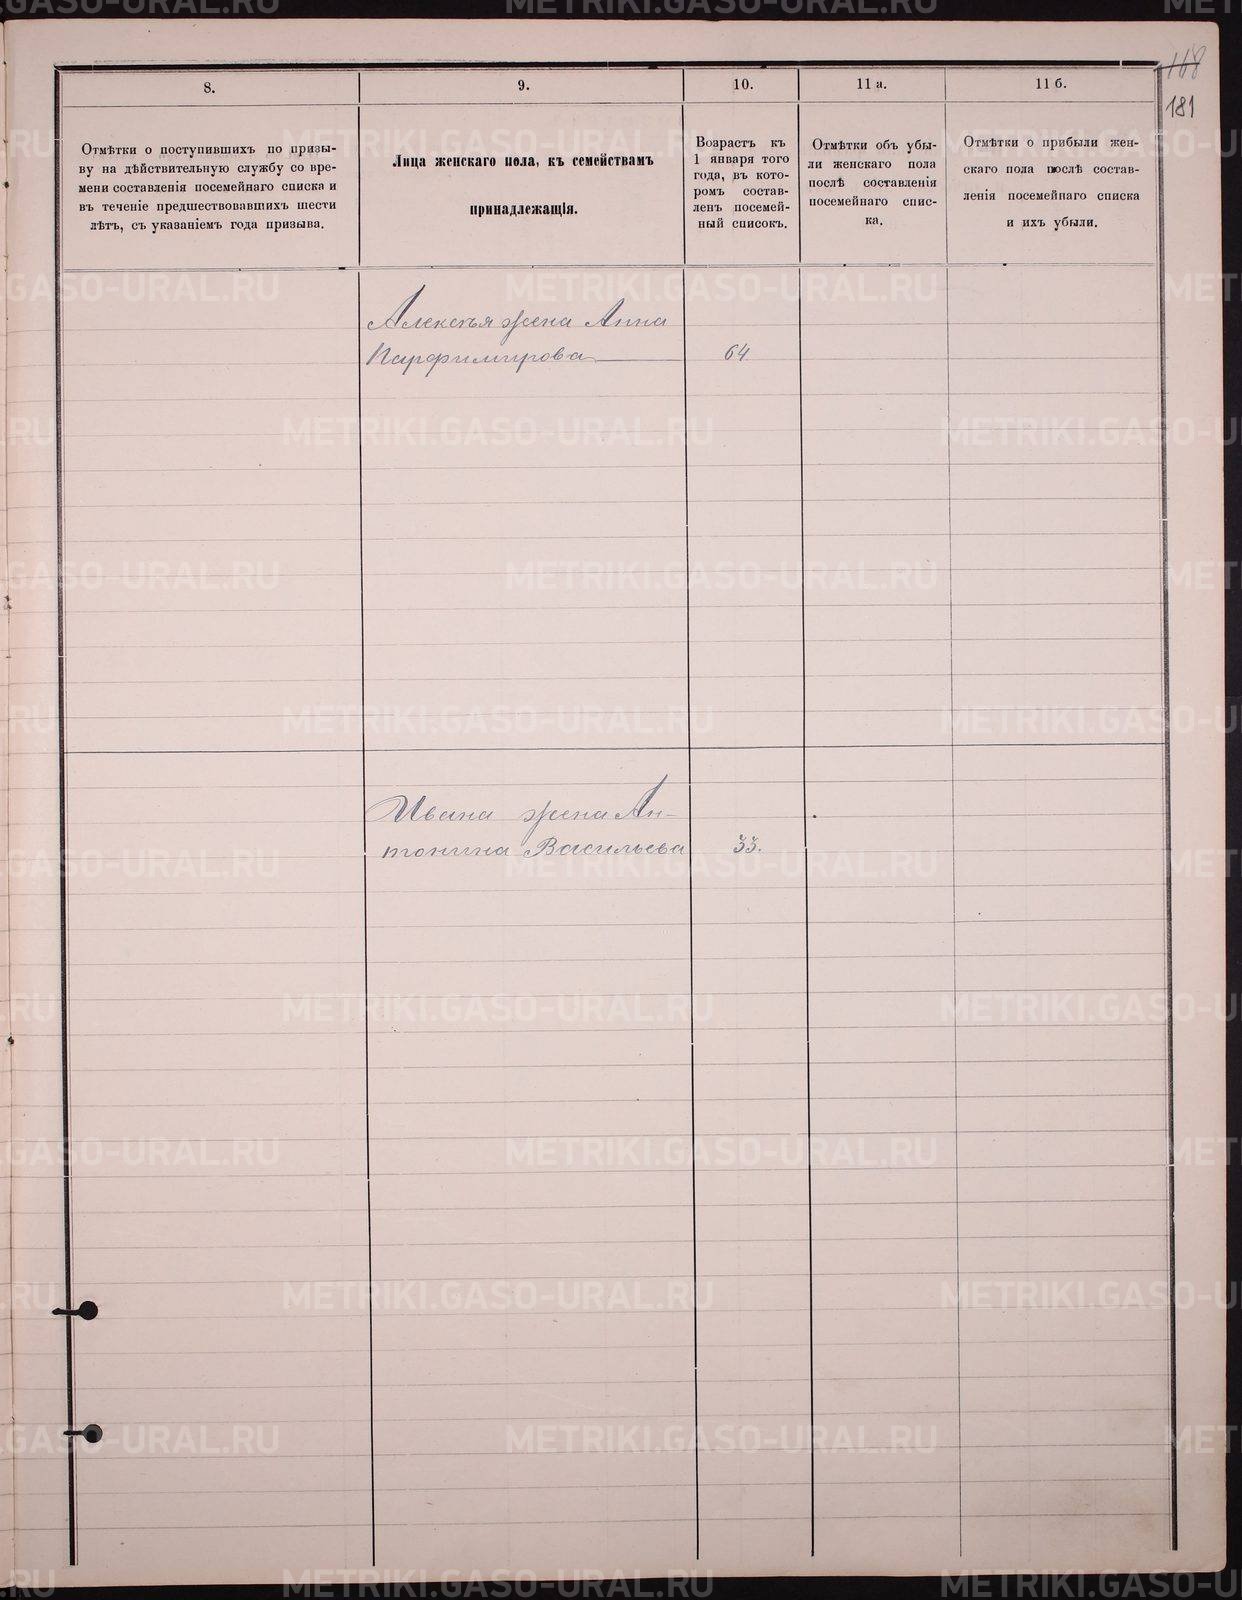 168
181
8.
Отмѣтки о поступившихъ по призы-
ву на дѣйствительную службу со вре-
мени составленія посемейнаго списка и
въ теченіе предшествовавшихъ шести
лѣтъ, съ указаніемъ года призыва.
9.
Лица женскаго пола, къ семействамъ
принадлежащія.
10.
Возрастъ къ
1 января того
года, въ кото-
ромъ состав-
ленъ посемей-
ный списокъ.
11 а.
Отмѣтки объ убы-
ли женскаго пола
послѣ составленія
посемейнаго спис-
ка.
11 б.
Отмѣтки о прибыли жен-
скаго пола послѣ состав-
ленія посемейнаго списка
и ихъ убыли.
Алексѣя жена Анна
Парфимирова 64
Ивана жена Ан-
тонина Васильева 33.
METRIKI.GASO-URAL.RU